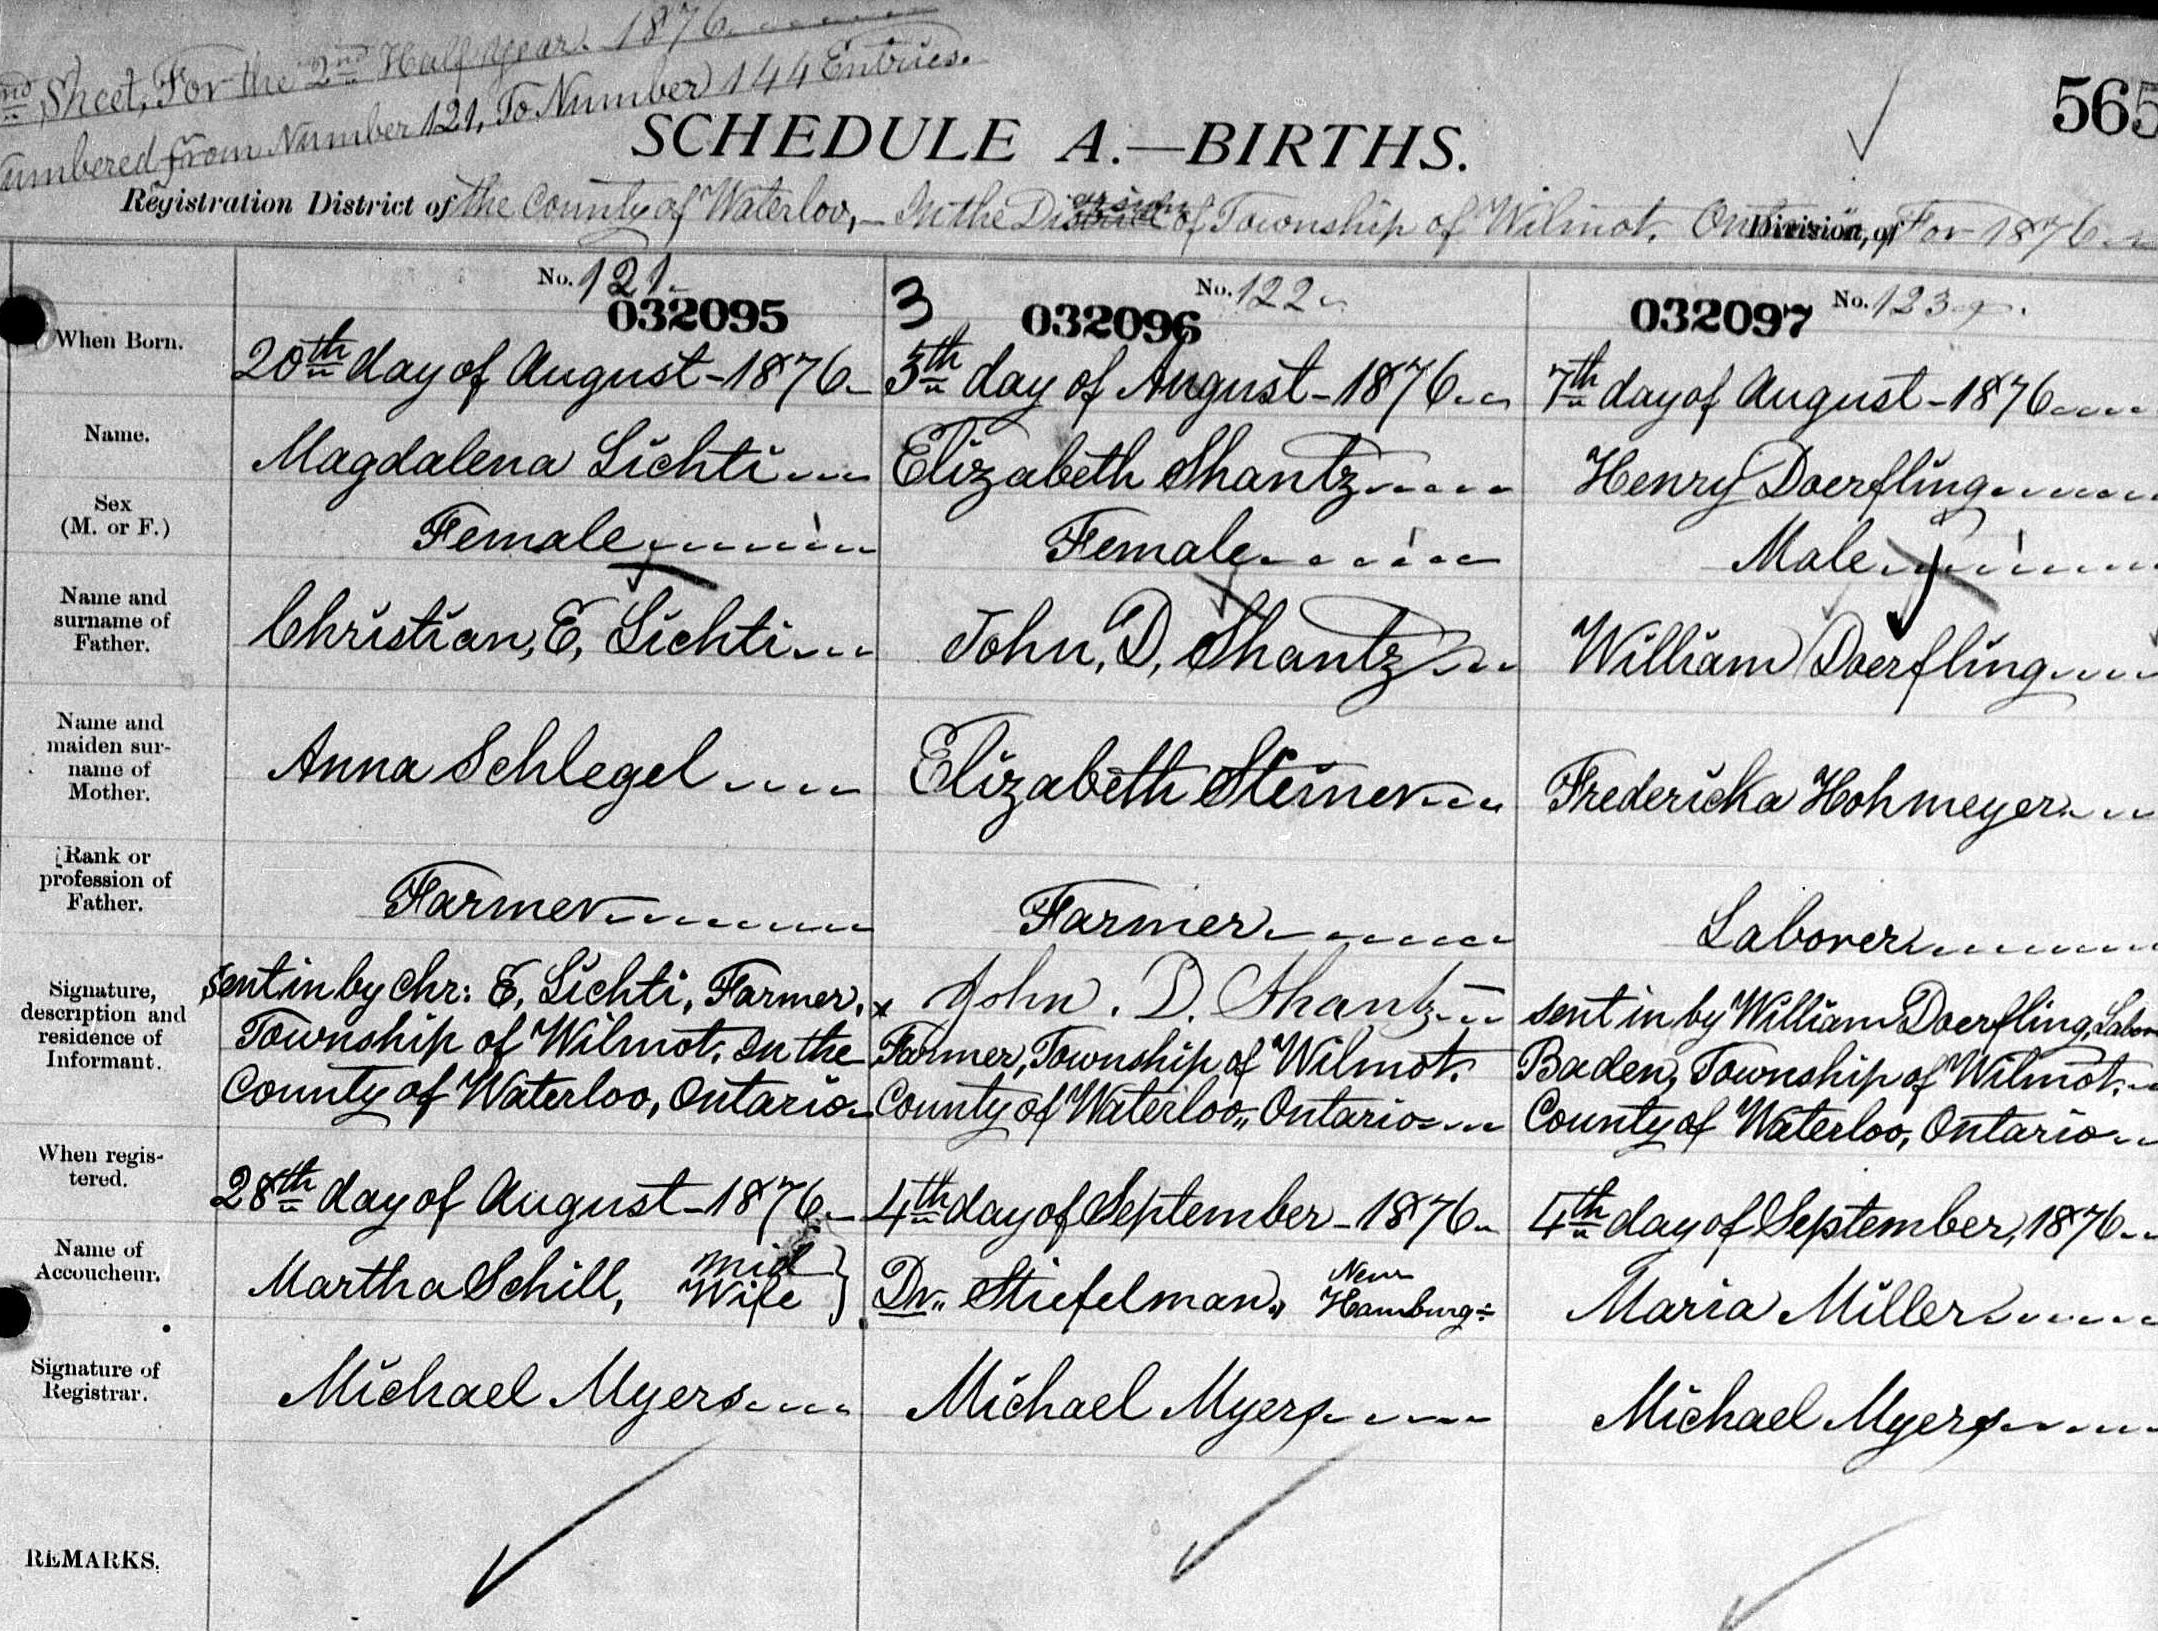 nd Sheet, For the 2nd Half Year. 1876
umbered from Number 121, To Number 144 Entries.
565
SCHEDULE A.—BIRTHS.
Registration District of the County of Waterloo, - In the Division of Township of Wilmot, Ontario, Division, of For 1876
No. 121 No. 122 No. 123
032095 3 032096 032097
When Born. 20th day of August - 1876 5th day of August - 1876 7th day of August - 1876
Name. Magdalena Lichti Elizabeth Shantz Henry Doerfling
Sex
(M. or F.) Female Female Male
Name and
surname of
Father. Christian, E, Lichti John, D, Shantz William Doerfling
Name and
maiden sur-
name of
Mother. Anna Schlegel Elizabeth Steiner Fredericka Hohmeyer
Rank or
profession of
Father. Farmer Farmer Laborer
Signature,
description and
residence of
Informant.
sent in by Chr: E, Lichti, Farmer,
Township of Wilmot, In the
County of Waterloo, Ontario
x John. D. Shantz
Farmer, Township of Wilmot.
County of Waterloo,, Ontario
sent in by William Doerfling, Labor
Baden, Township of Wilmot,
County of Waterloo, Ontario
When regis-
tered. 28th day of August - 1876 4th day of September - 1876 4th day of September, 1876
Name of
Accoucheur. Martha Schill, Mid
Wife } Dr,, Stiefelman,, New
Hamburg Maria Miller
Signature of
Registrar. Michael Myers Michael Myers Michael Myers
REMARKS.